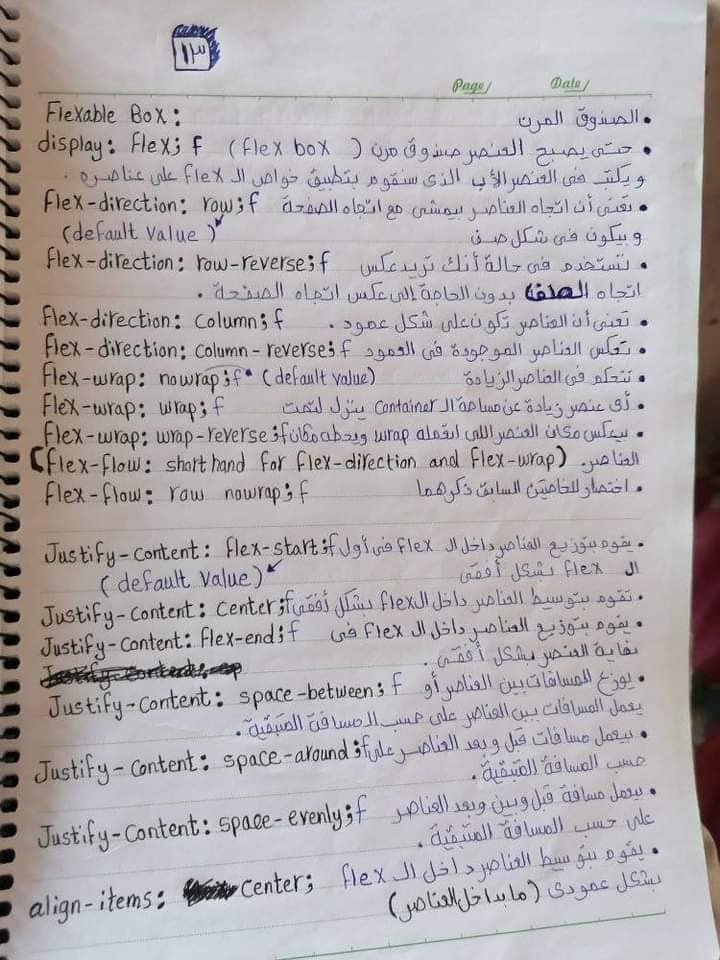 ١٣
Page/ Date/
Flexable Box: • الصندوق المرن
display: flex; f (flex box) • حتى يصبح العنصر صندوق مرن
ويكتب فى العنصر الأب الذى سنقوم بتطبيق خواص الـ flex على عناصره .
flex-direction: row; f • تعنى أن اتجاه العناصر بيمشى مع اتجاه الصفحة
(default value) وبيكون فى شكل صف
flex-direction: row-reverse; f • تستخدم فى حالة أنك تريد عكس
اتجاه الصف بدون الحاجة إلى عكس اتجاه الصفحة .
flex-direction: column; f • تعنى أن العناصر تكون على شكل عمود .
flex-direction: column-reverse; f • تعكس العناصر الموجودة فى العمود
flex-wrap: nowrap; f (default value) • تتحكم فى العناصر الزيادة
flex-wrap: wrap; f • أى عنصر زيادة عن مساحة الـ container ينزل لتحت
flex-wrap: wrap-reverse; f • بيعكس مكان العنصر اللى اتعمله wrap ويحطه مكان
(flex-flow: short hand for flex-direction and flex-wrap) العناصر.
flex-flow: row nowrap; f • اختصار للخاصيتين السابق ذكرهما
Justify-content: flex-start; f • يقوم بتوزيع العناصر داخل الـ flex فى أول
(default value) الـ flex بشكل أفقى
Justify-content: center; f • تقوم بتوسيط العناصر داخل الـ flex بشكل أفقى
Justify-content: flex-end; f • يقوم بتوزيع العناصر داخل الـ flex فى
نهاية العنصر بشكل أفقى .
Justify-content: space-between; f • يوزع المسافات بين العناصر أو
يعمل المسافات بين العناصر على حسب المسافة المتبقية .
Justify-content: space-around; f • بيعمل مسافات قبل وبعد العناصر على
حسب المسافة المتبقية .
Justify-content: space-evenly; f • بيعمل مسافة قبل وبين وبعد العناصر
على حسب المسافة المتبقية .
align-items: center; • يقوم بتوسيط العناصر داخل الـ flex
بشكل عمودى (ما بداخل العناصر)